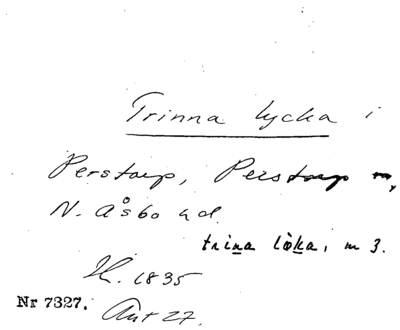 Trinna lycka i
Perstorp, Perstorp sn,
N. Åsbo hd.
trina lö̀ka, m 3.
H. 1835
Nr 7327. Ant 27.